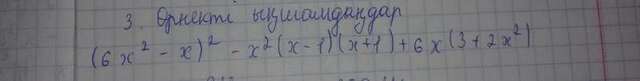 3. Өрнекті ықшамдаңдар
(6x² - x)² - x²(x-1)(x+1) + 6x(3+2x²)